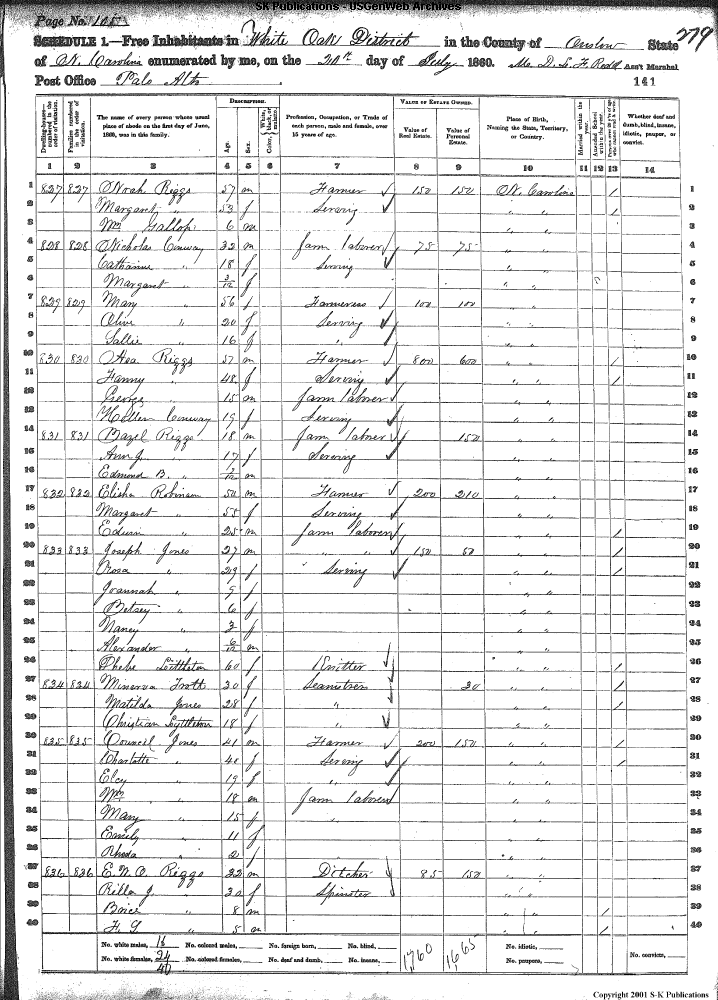 SK Publications - USGenWeb Archives
Page No. 279
SCHEDULE 1.—Free Inhabitants in White Oak District in the County of Onslow State
of N. Carolina enumerated by me, on the 20th day of July 1860. Ass't Marshal
Post Office Palo Alto 141
Dwelling-houses— numbered in the order of visitation.
Families numbered in the order of visitation.
The name of every person whose usual place of abode on the first day of June, 1860, was in this family.
DESCRIPTION.
Age. Sex. Color, White, black, or mulatto.
Profession, Occupation, or Trade of each person, male and female, over 15 years of age.
VALUE OF ESTATE OWNED.
Value of Real Estate. Value of Personal Estate.
Place of Birth, Naming the State, Territory, or Country.
Married within the year.
Whether deaf and dumb, blind, insane, idiotic, pauper, or convict.
1 2 3 4 5 6 7 8 9 10 11 12 13 14
1 827 827 Noah Riggs 57 m Farmer 150 150 N. Carolina / 1
2 Margaret " 53 f Serving " " / 2
3 Wm Gallop 6 m " " 3
4 828 828 Nicholas Conway 32 m farm laborer 75 75 " " 4
5 Catharine " 18 f Serving " " 5
6 Margaret " 3/12 f " " 6
7 829 829 Mary " 56 f Farmeress 100 100 " " 7
8 Olive " 20 f Serving " " 8
9 Sallie " 16 f " " " 9
10 830 830 Riggs 57 m Farmer 800 600 " " / 10
11 Fanny " 48 f Serving " " / 11
12 George " 15 m farm laborer " " 12
13 Conway 19 f Serving " " 13
14 831 831 Bazel Riggs 18 m farm laborer 150 " " 14
15 Ann J. " 17 f Serving " " 15
16 Edmond B. " m " " 16
17 832 832 Elisha Robinson 50 m Farmer 200 210 " " 17
18 Margaret " 55 f Serving " " 18
19 Edwin " 25 m farm laborer " " / 19
20 833 833 Joseph Jones 27 m " " 150 50 " " / 20
21 Rosa " 29 f Serving " " / 21
22 Joannah " 9 f " " 22
23 Betsey " 6 f " " 23
24 Nancy " 3 f " " 24
25 Alexander " 6/12 m " " 25
26 Phebe Littleton 60 f Knitter " " / 26
27 834 834 Minerva Trott 30 f Seamstress 30 " " / 27
28 Matilda Jones 28 f " " " / 28
29 Christian Lyttleton 18 f " " " 29
30 835 835 Council Jones 41 m Farmer 200 150 " " / 30
31 Charlotte " 40 f Serving " " / 31
32 Elcy " 19 f " " " 32
33 Wm " 18 m farm laborer " " 33
34 Mary " 15 f " " " 34
35 Emily " 11 f " " 35
36 Rhoda " 2 f " " 36
37 836 836 E. W. Riggs 22 m Ditcher 85 150 " " 37
38 Rilla J. " 30 f Spinster " " 38
39 Brice " 8 m " " / 39
40 F. G. " 5 m " " / 40
No. white males, 16 No. colored males, No. foreign born, No. blind, No. idiotic,
No. white females, 24 No. colored females, No. deaf and dumb, No. insane, 1,760 1,665 No. paupers, No. convicts,
40
Copyright 2001 S-K Publications